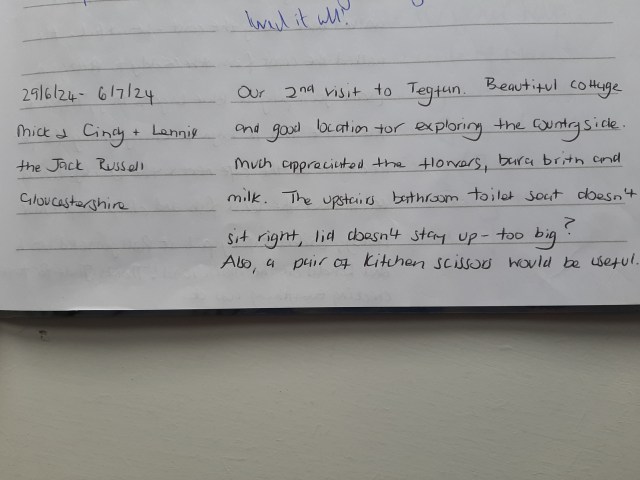 loved it all!
29/6/24 - 6/7/24
Our 2nd visit to Tegfan. Beautiful cottage
Mick & Cindy + Lennie
and good location for exploring the countryside.
the Jack Russell
Much appreciated the flowers, bara brith and
Gloucestershire
milk. The upstairs bathroom toilet seat doesn't
sit right, lid doesn't stay up - too big?
Also, a pair of kitchen scissors would be useful.